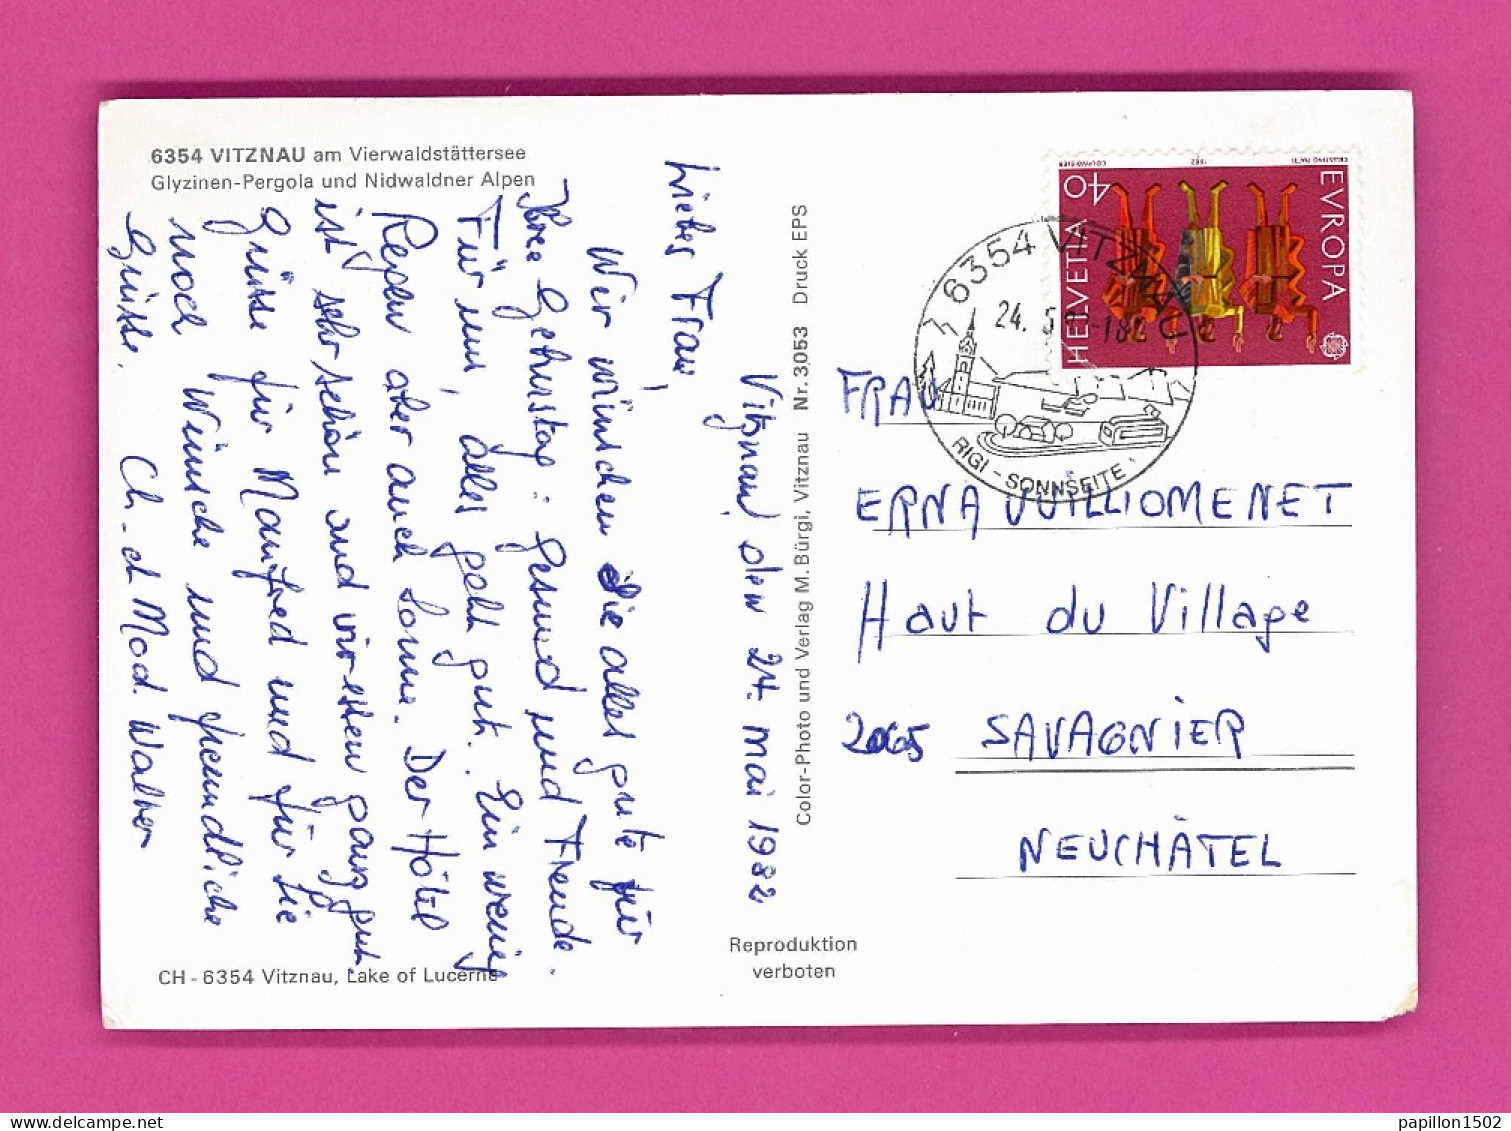 6354 VITZNAU am Vierwaldstättersee
Glyzinen-Pergola und Nidwaldner Alpen
Vitznau, den 24. Mai 1982
Liebes Frau,
Wir wünschen Sie alles gute für
Ihre Geburstag: Gesund und Freude.
Für uns, alles geht gut. Ein wenig
Regen aber auch Sonne. Der Hôtel
ist sehr schön und wir essen ganz gut
Grüsse für Manfred und für Sie
noch Wünsche und freundliche
Grüsse.
Ch. et Mad. Walther
CH - 6354 Vitznau, Lake of Lucerne
Color-Photo und Verlag M. Bürgi, Vitznau Nr. 3053 Druck EPS
Reproduktion
verboten
HELVETIA 40
EVROPA
COURVOISIER 1982 CELESTINO PIATTI
6354 VITZNAU
24. 5. -18
RIGI - SONNSEITE
FRAU
ERNA VUILLIOMENET
Haut du Village
2065 SAVAGNIER
NEUCHÂTEL
papillon1502